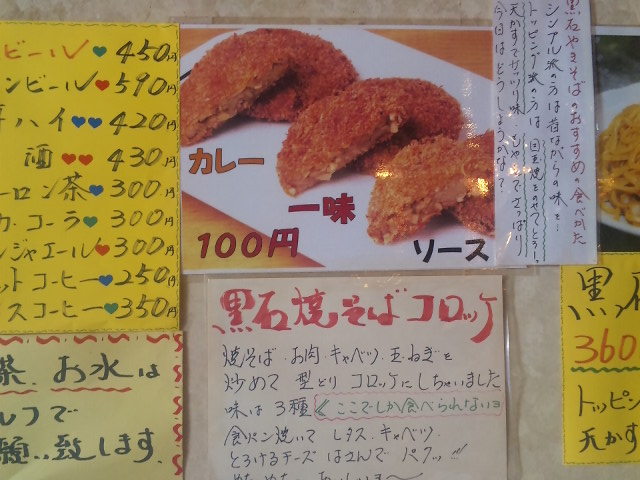 ビール♥450円
ンビール♥590円
ハイ♥♥420円
酒♥♥430円
ーロン茶♥300円
カ・コーラ♥300円
ンジャエール♥300円
ットコーヒー♥250円
スコーヒー♥350円
茶、お水は
ルフで
願い致します
カレー
一味
ソース
100円
黒石やきそばのおすすめの食べかた
シンプル派の方は昔ながらの味を…
トッピング派の方は
天かすでガッツリ味
今日はどうしようかな?
黒石焼そばコロッケ
焼そば、お肉、キャベツ、玉ねぎを
炒めて 型とり コロッケにしちゃいました
味は3種 ここでしか食べられないヨ
食パン焼いて レタス、キャベツ、
とろけるチーズ はさんで パクッ!!!
黒
360
トッピン
天かす